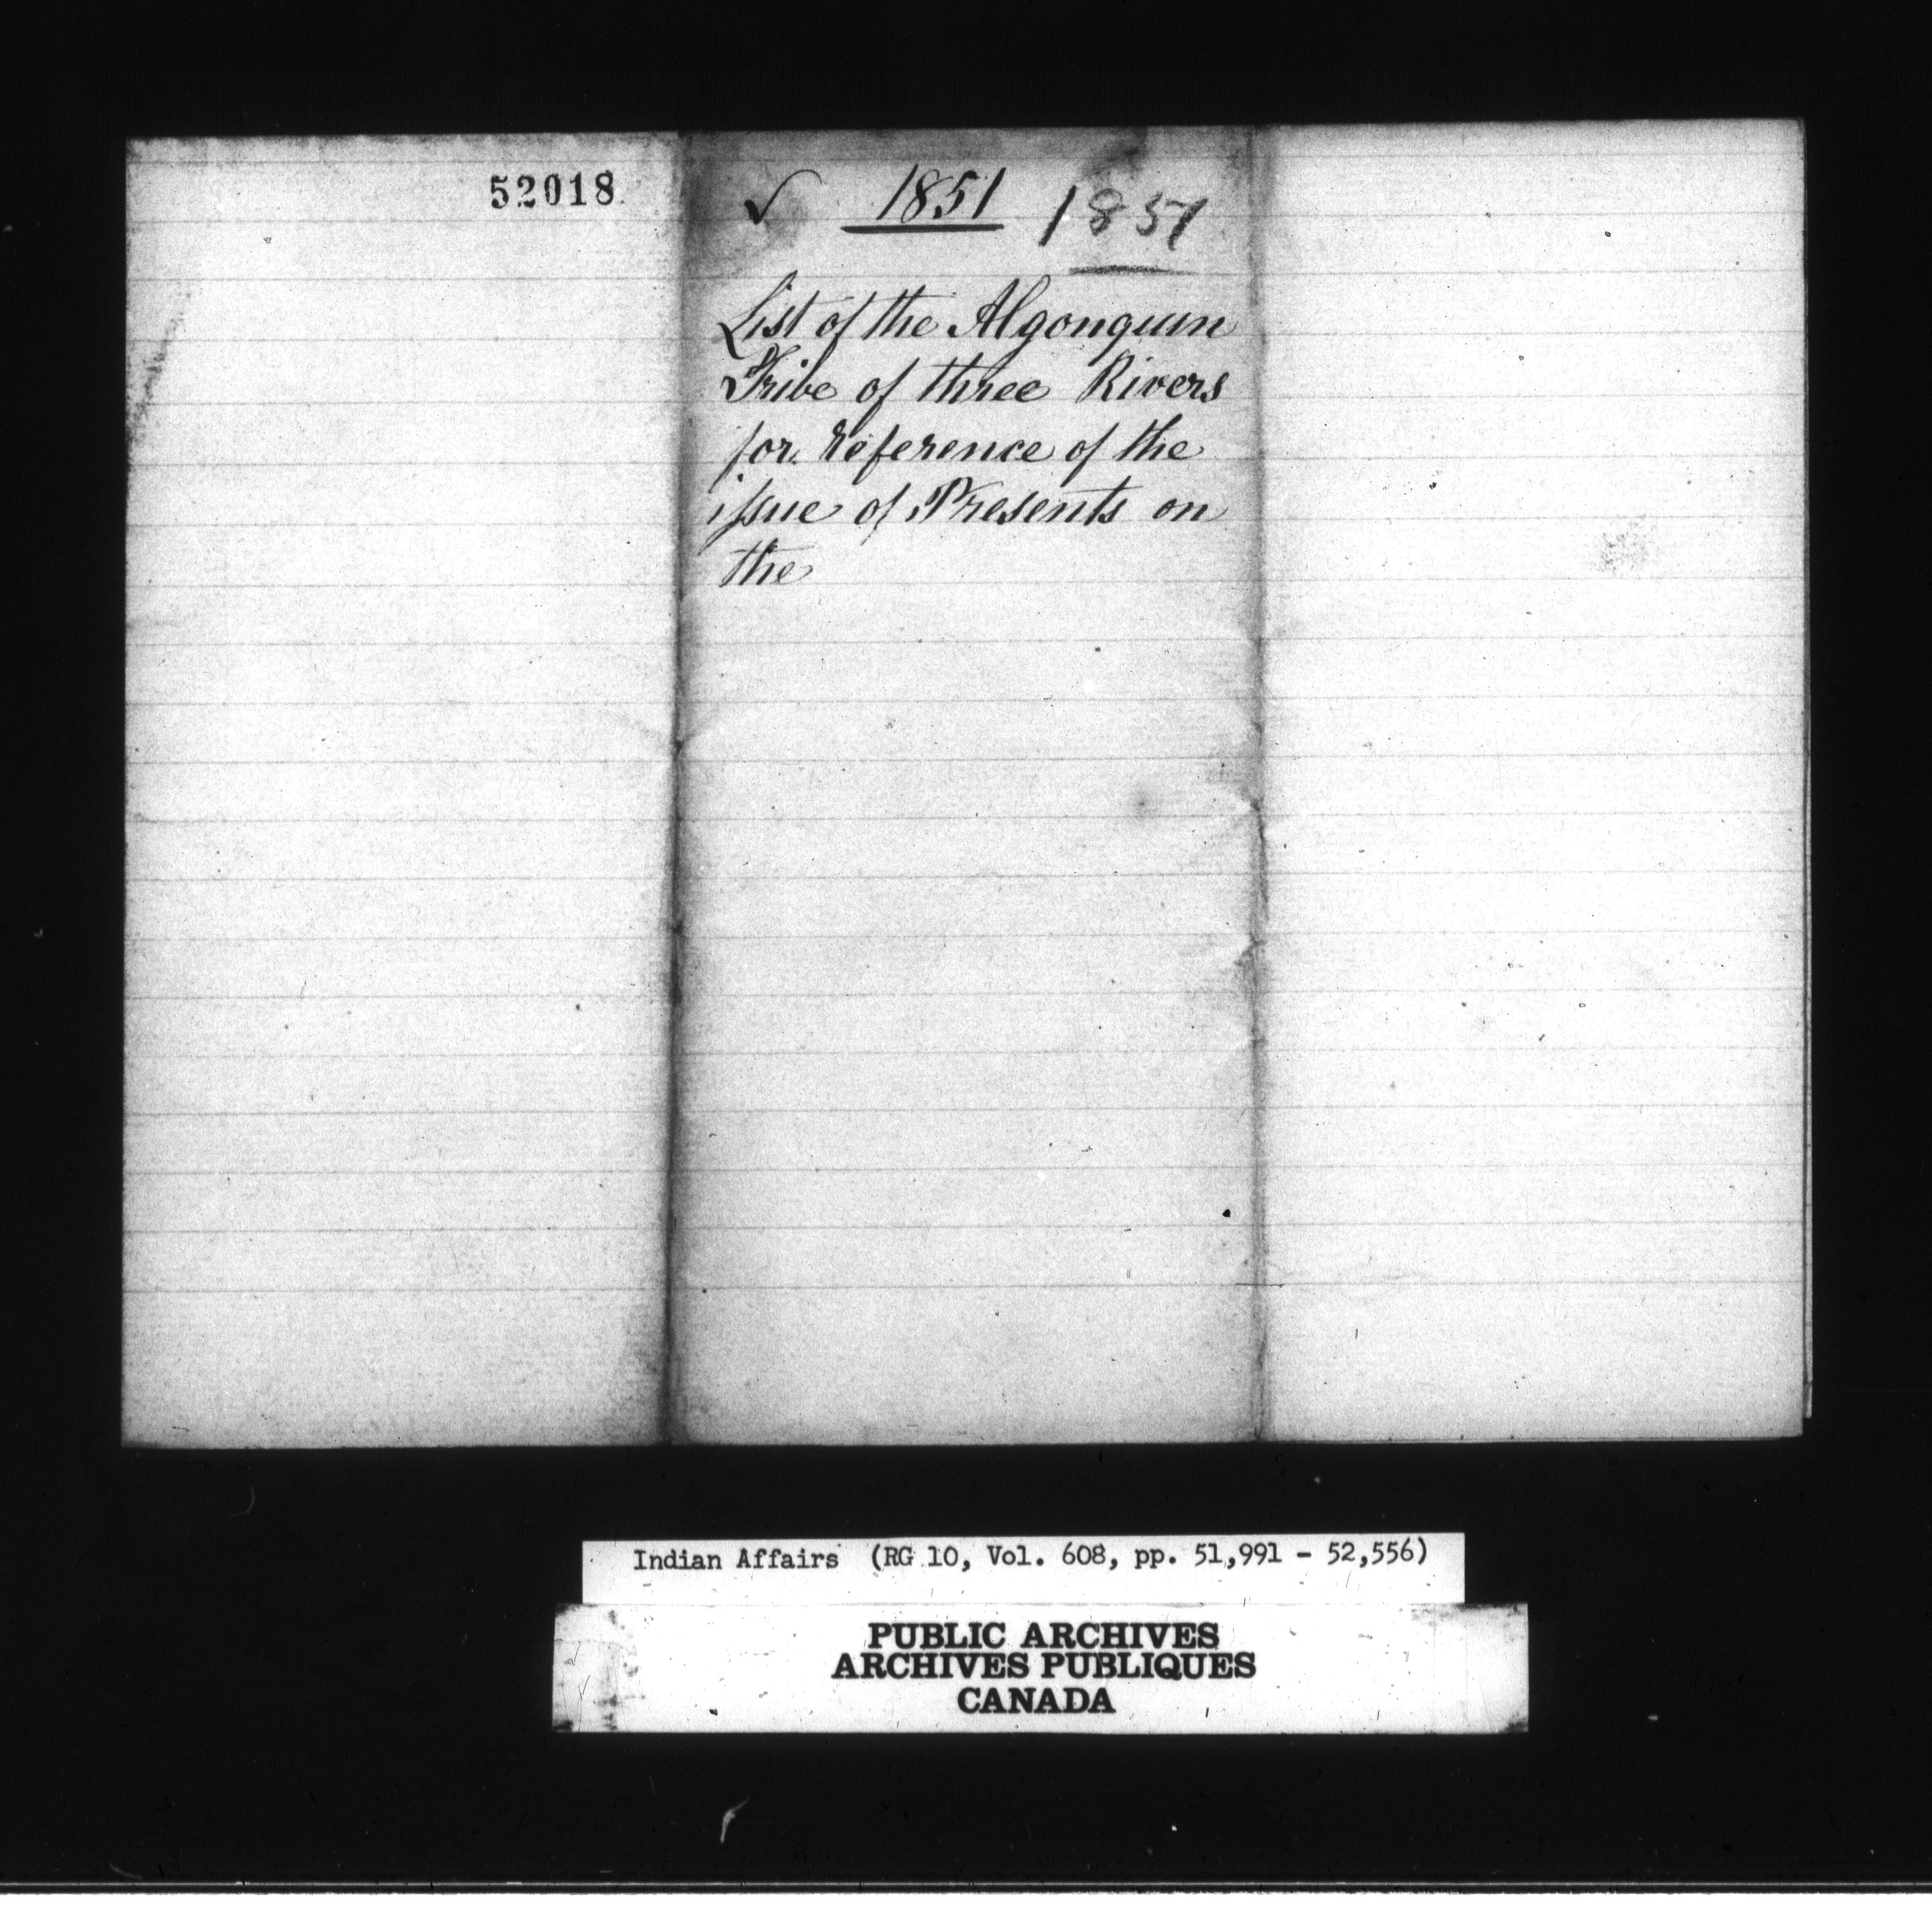 52018
✓ 1851 1851
List of the Algonquin
Tribe of three Rivers
for reference of the
issue of Presents on
the
Indian Affairs (RG 10, Vol. 608, pp. 51,991 - 52,556)
PUBLIC ARCHIVES
ARCHIVES PUBLIQUES
CANADA